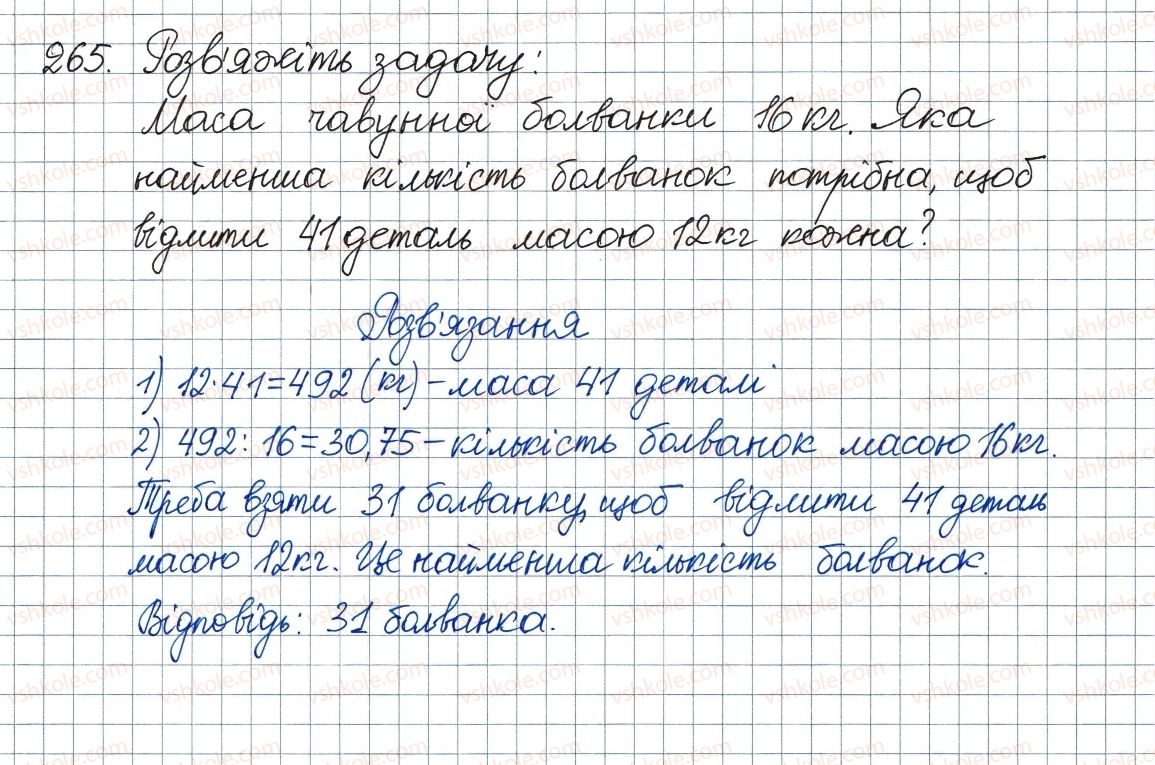 265. Розв'яжіть задачу:
Маса чавунної болванки 16 кг. Яка
найменша кількість болванок потрібна, щоб
відлити 41 деталь масою 12 кг кожна?
Розв'язання
1) 12·41=492 (кг) – маса 41 деталі
2) 492:16=30,75 – кількість болванок масою 16 кг.
Треба взяти 31 болванку, щоб відлити 41 деталь
масою 12 кг. Це найменша кількість болванок.
Відповідь: 31 болванка.
vshkole.com